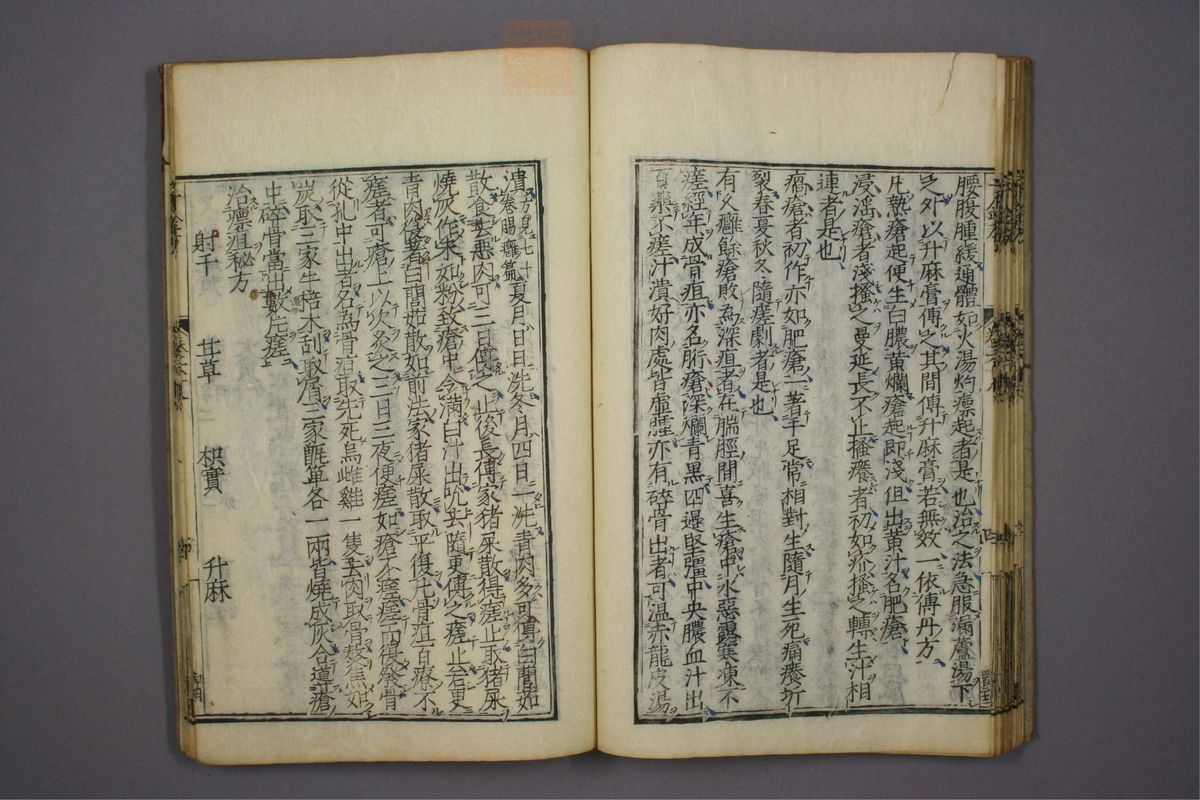 腰腹腫緩通體如火湯灼瘭起者是也治之法急服漏蘆湯下
之外以升麻膏傅之其間傅升麻膏若無效一依傅丹方
凡熱瘡起便生白膿黃爛瘡起即淺但出黃汁名肥瘡
浸淫瘡者淺搔之曼延長不止搔癢者初如疥搔之轉生汁相
連者是也
瘑瘡者初作亦如肥瘡一著手足常相對生隨月生死痛癢坼
裂春夏秋冬隨瘥劇者是也
有久癰餘瘡敗為深疽者在腨脛間喜生瘡中水惡露寒凍不
瘥經年成骨疽亦名胻瘡深爛青黑四邊堅彊中央膿血汁出
百藥不瘥汁潰好肉處皆虛腫亦有碎骨出者可溫赤龍皮湯
漬方見七十卷腸癰篇夏月日日洗冬月四日一洗青肉多可傅白䕡茹
散食去惡肉可三日傅之止後長傅家猪屎散得瘥止取猪屎
燒灰作末如粉致瘡中令滿白汁出吮去隨更傅之瘥止若更
青肉復著白䕡茹散如前法家猪屎散取平復凡骨疽百療不
瘥者可瘡上以次灸之三日三夜便瘥如瘡不瘥瘥而復發骨
從孔中出者名為骨疽取先死烏雌雞一隻去肉取骨熬焦如
炭取三家牛棓木刮取屑三家甑箄各一兩皆燒成灰合導瘡
中碎骨當出數片瘥
治瘭疽秘方
射干 甘草 枳實 升麻